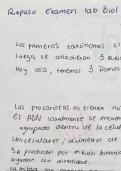 Repaso Examen lab Biol
Los primeros taxónomos
luego, se añadieron 3 Rei
Hoy día, tenemos 3 Domin
Los procariotas no tienen nú
El ADN usualmente se encuen
agrupado dentro de la célul
Unicelulares,
Se producen por fisión binari
ayudan con diversidad.